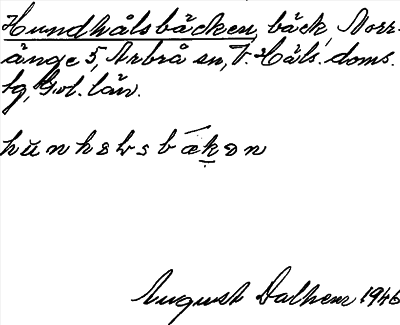 Hundhålsbäcken, bäck, Norr-
änge 5, Arbrå sn, V. Häls. doms.
sg, Gvl. län.
August Dalhem 1946